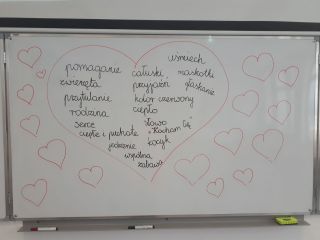 uśmiech
pomaganie
całuski
maskotki
zwierzęta
przyjaźń
głaskanie
przytulanie
kolor czerwony
rodzina
ciepło
serce
słowo
"Kocham Cię"
ciepłe i puchate
kocyk
jedzenie
wspólna
zabawa